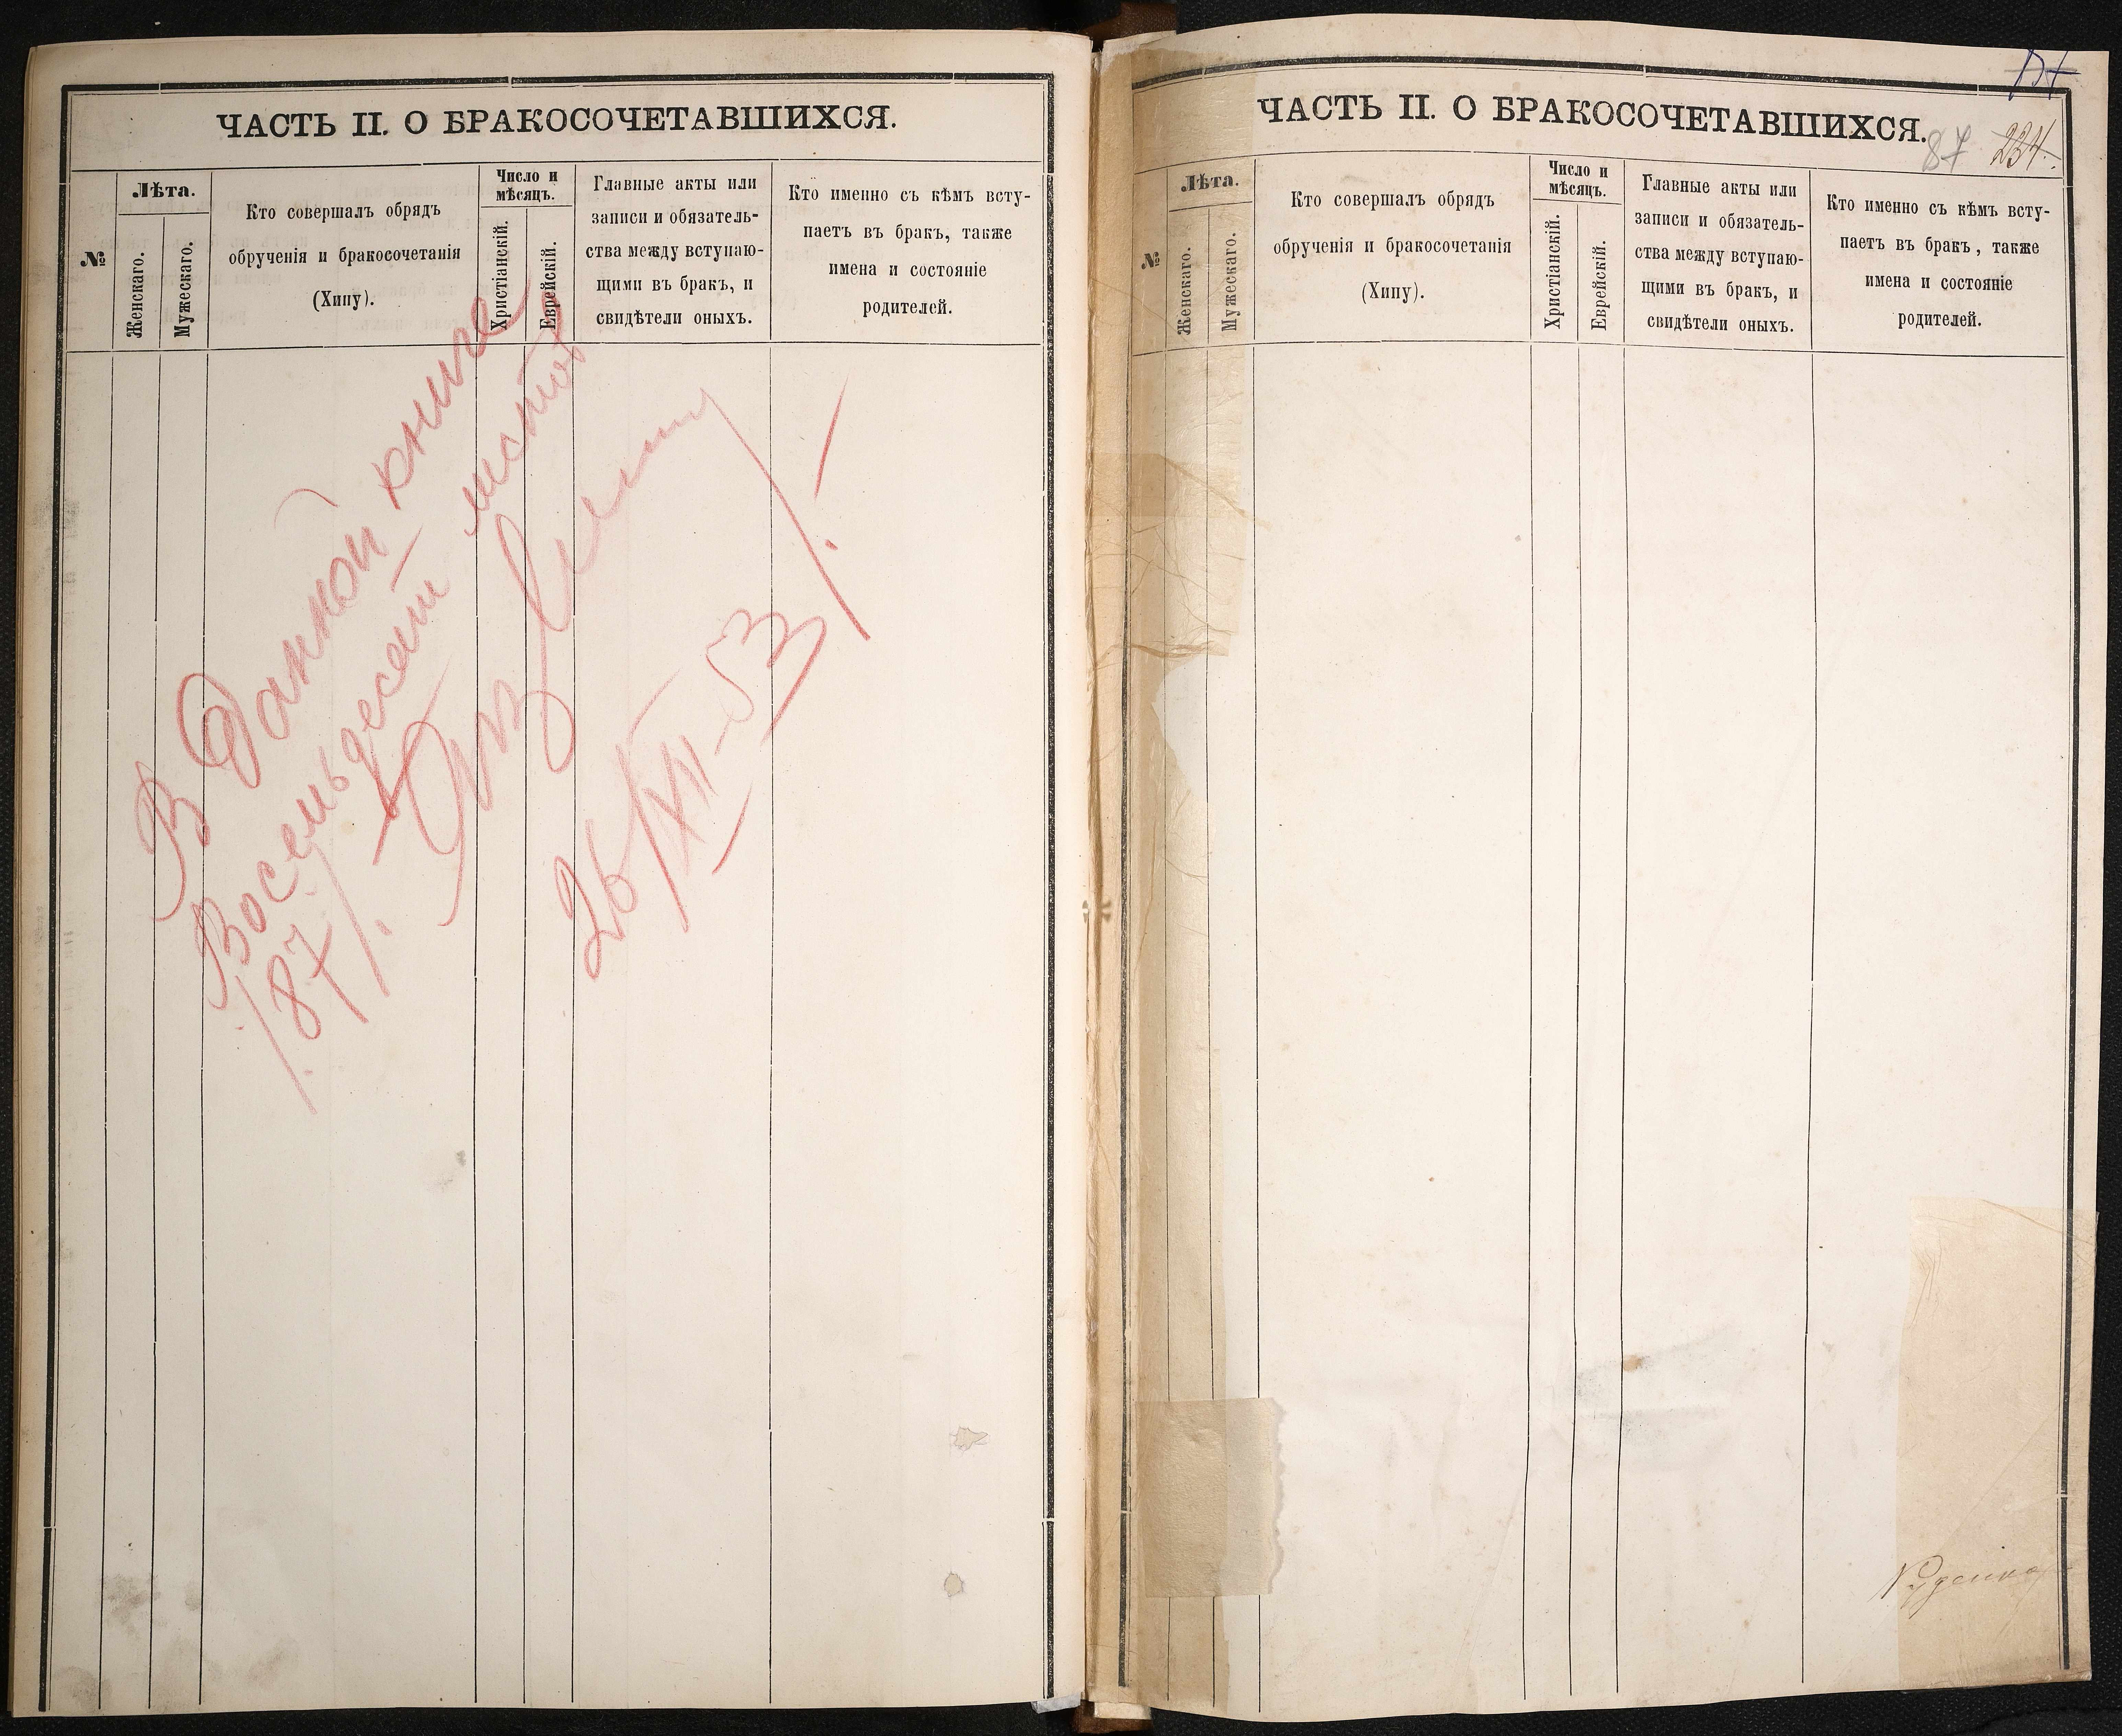 ЧАСТЬ II. О БРАКОСОЧЕТАВШИХСЯ.
№
Лѣта.
Женскаго.
Мужескаго.
Кто совершалъ обрядъ
обрученія и бракосочетанія
(Хипу).
Число и
мѣсяцъ.
Христіанскій.
Еврейскій.
Главные акты или
записи и обязатель-
ства между вступаю-
щими въ бракъ, и
свидѣтели оныхъ.
Кто именно съ кѣмъ всту-
паетъ въ бракъ, также
имена и состояніе
родителей.
В данной книге
Восемьдесят листов
/87/.
26/XII-53
ЧАСТЬ II. О БРАКОСОЧЕТАВШИХСЯ.
87 234.
№
Лѣта.
Женскаго.
Мужескаго.
Кто совершалъ обрядъ
обрученія и бракосочетанія
(Хипу).
Число и
мѣсяцъ.
Христіанскій.
Еврейскій.
Главные акты или
записи и обязатель-
ства между вступаю-
щими въ бракъ, и
свидѣтели оныхъ.
Кто именно съ кѣмъ всту-
паетъ въ бракъ, также
имена и состояніе
родителей.